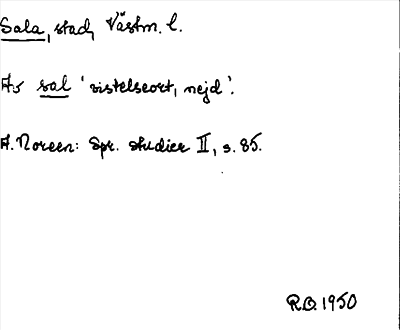 Sala, stad, Västm. l.
Av sal 'vistelseort, nejd'.
A. Noreen: Spr. studier II, s. 85.
R.O. 1950